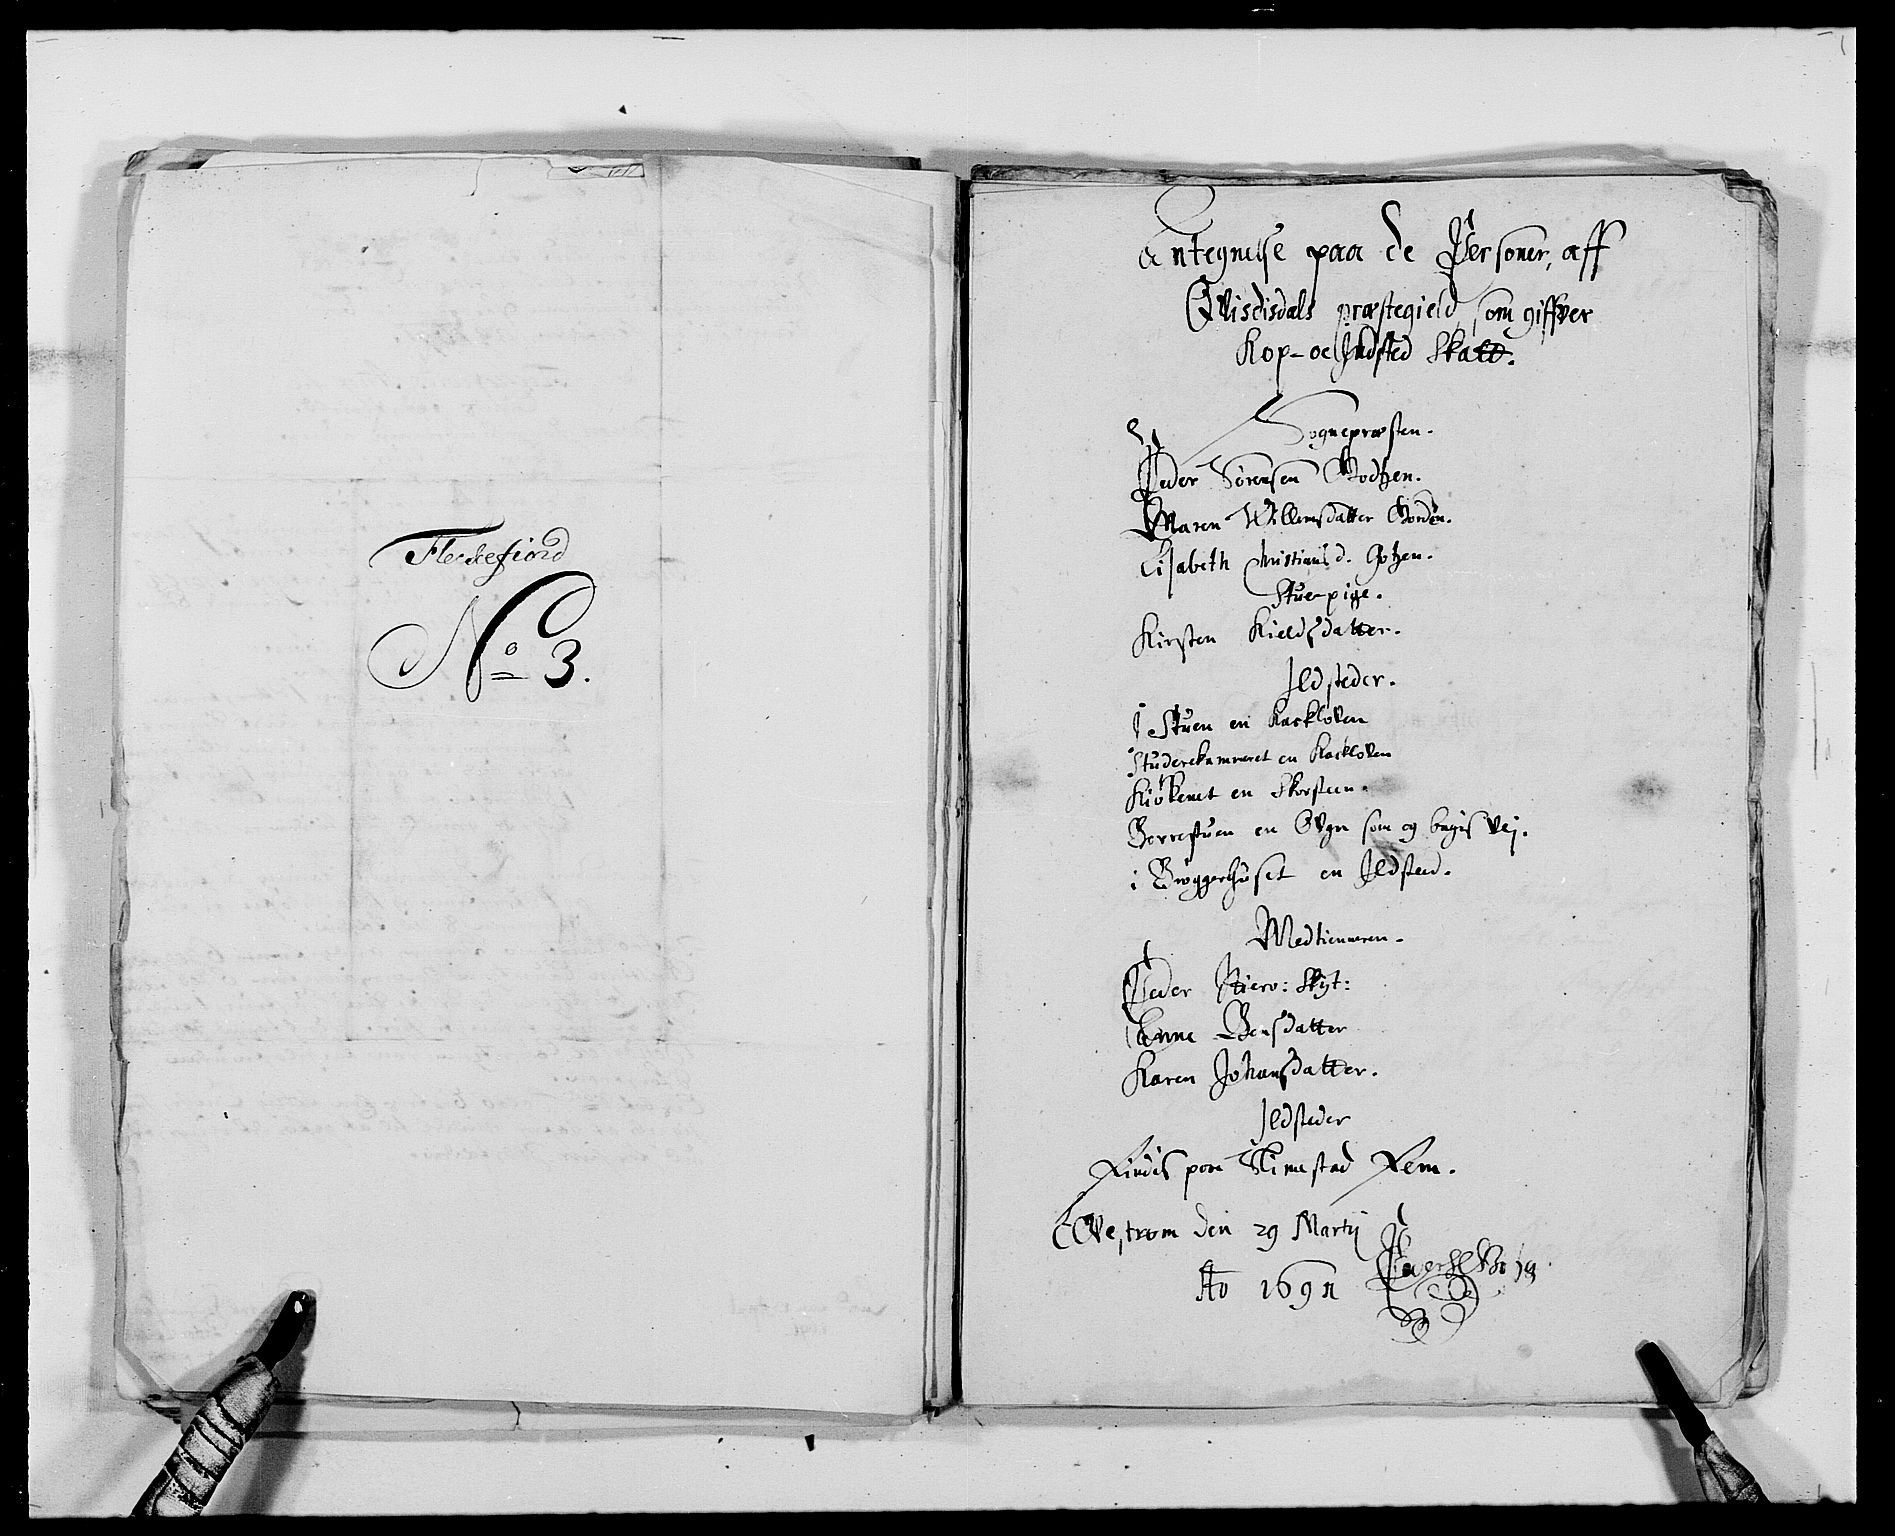 Fleckefiord
No 3.
Antegnelse paa de Personer, aff
Qvisdisdals præstegield som giffver
Kop- oc Jldsted Skatt.
Sognepræsten.
Peder Sørensen Godtzen.
Maren Willemsdatter Gorden.
Elisabeth Christians d. Gotzen.
Stue-pige.
Kirsten Kieldsdatter.
Jldsteder.
J Stuen en Kackloven
Studerekammeret en Kackloven
Kiøkenet en Skorsteen.
Borrestuen en Ovgn som og bagis vej.
i Bryggerhuset en Jldsted.
Medtienneren.
Peder Skyt:
Anne Bensdatter
Karen Johansdatter.
Jldsteder
Findis paa Slimestad Fem.
den 29 Martij
Ao 1691